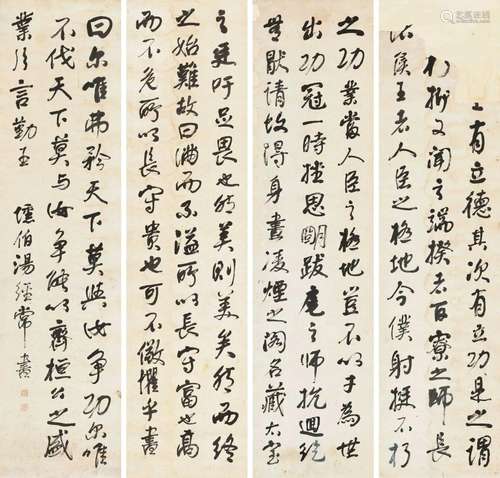 上有立德其次有立功是之謂
朽抑又聞之端揆者百寮之師長
諸侯王者人臣之極地今僕射挺不朽
之功業當人臣之極地豈不以才為世
出功冠一時挫思明跋扈之師抗迴紇
無猒請故得身畫凌煙之阁名藏太室
之廷吁足畏也然美則美矣然而終
之始難故曰滿而不溢所以長守富也高
而不危所以長守貴也可不儆懼乎書
曰尔唯弗矜天下莫與汝爭功尔唯
不伐天下莫与汝爭能以齊桓公之盛
業片言勤王 伯湯經常書